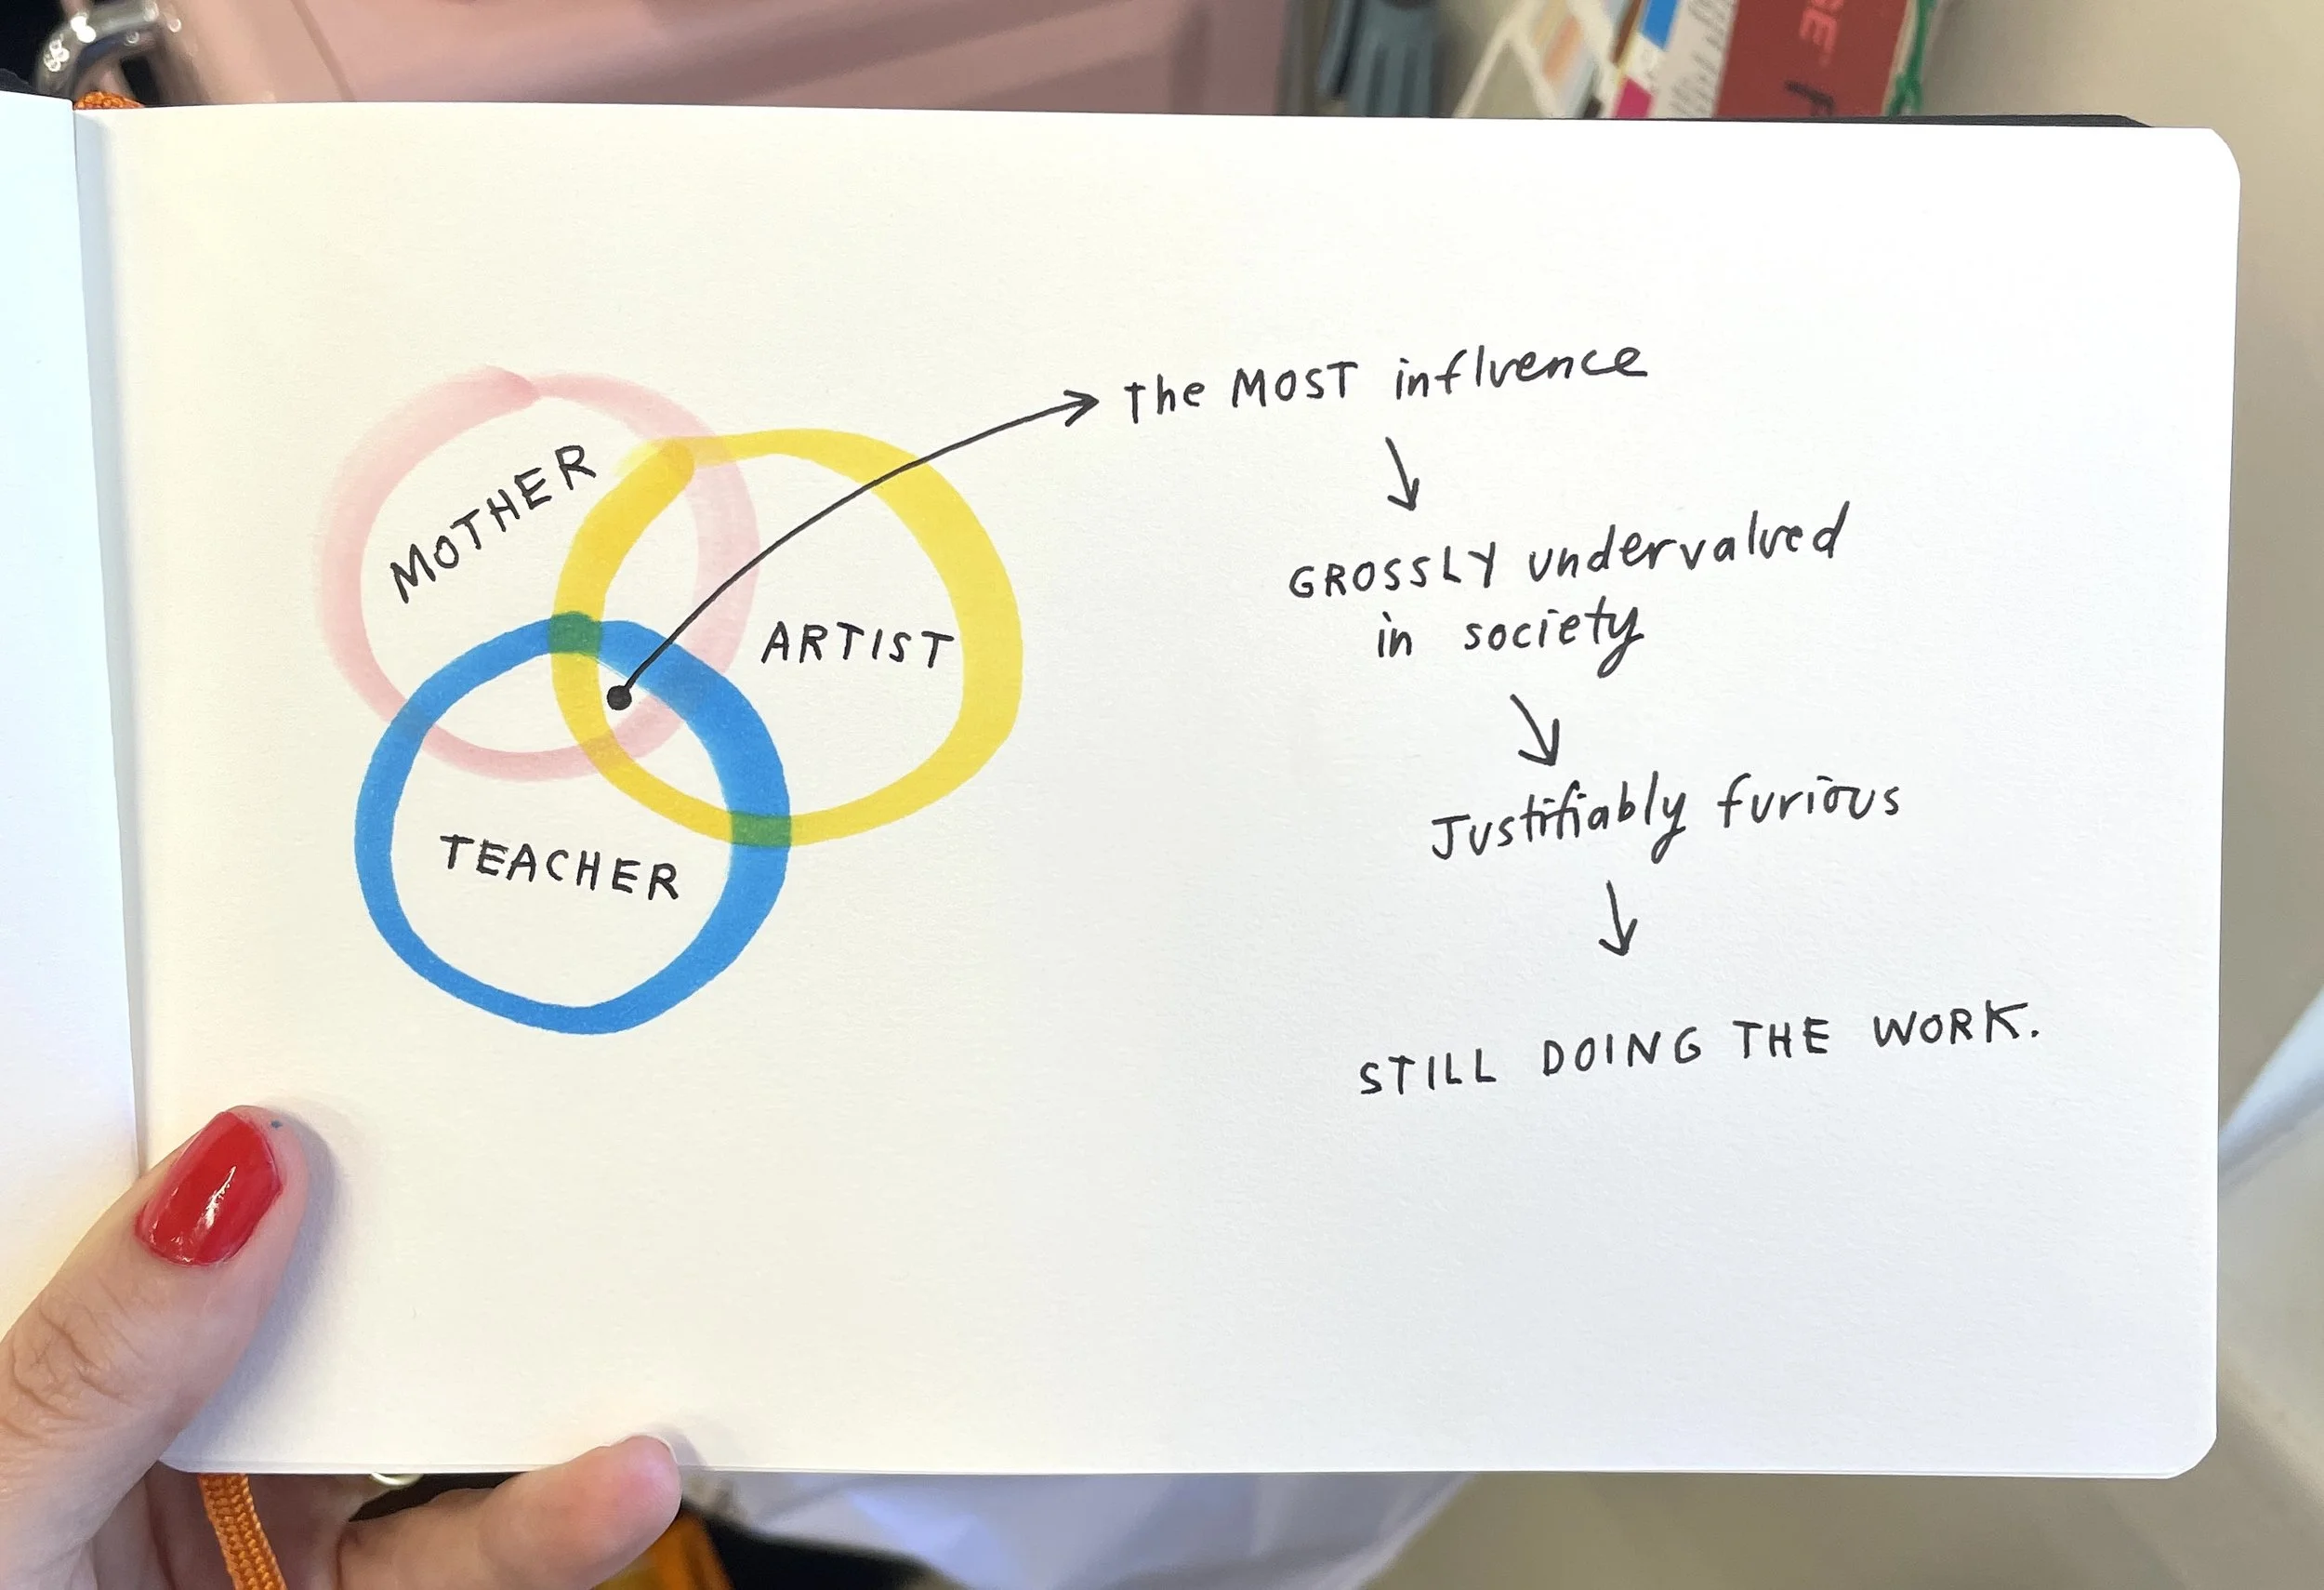 MOTHER
ARTIST
TEACHER
the MOST influence
GROSSLY undervalued
in society
Justifiably furious
STILL DOING THE WORK.